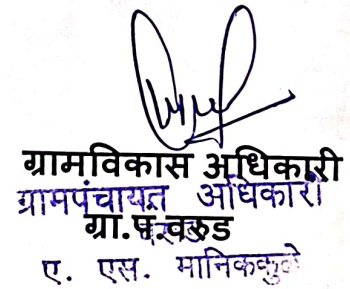 ग्रामविकास अधिकारी
ग्रामपंचायत अधिकारी
ग्रा.प.वरुड
ए. एस. मानिककुळे